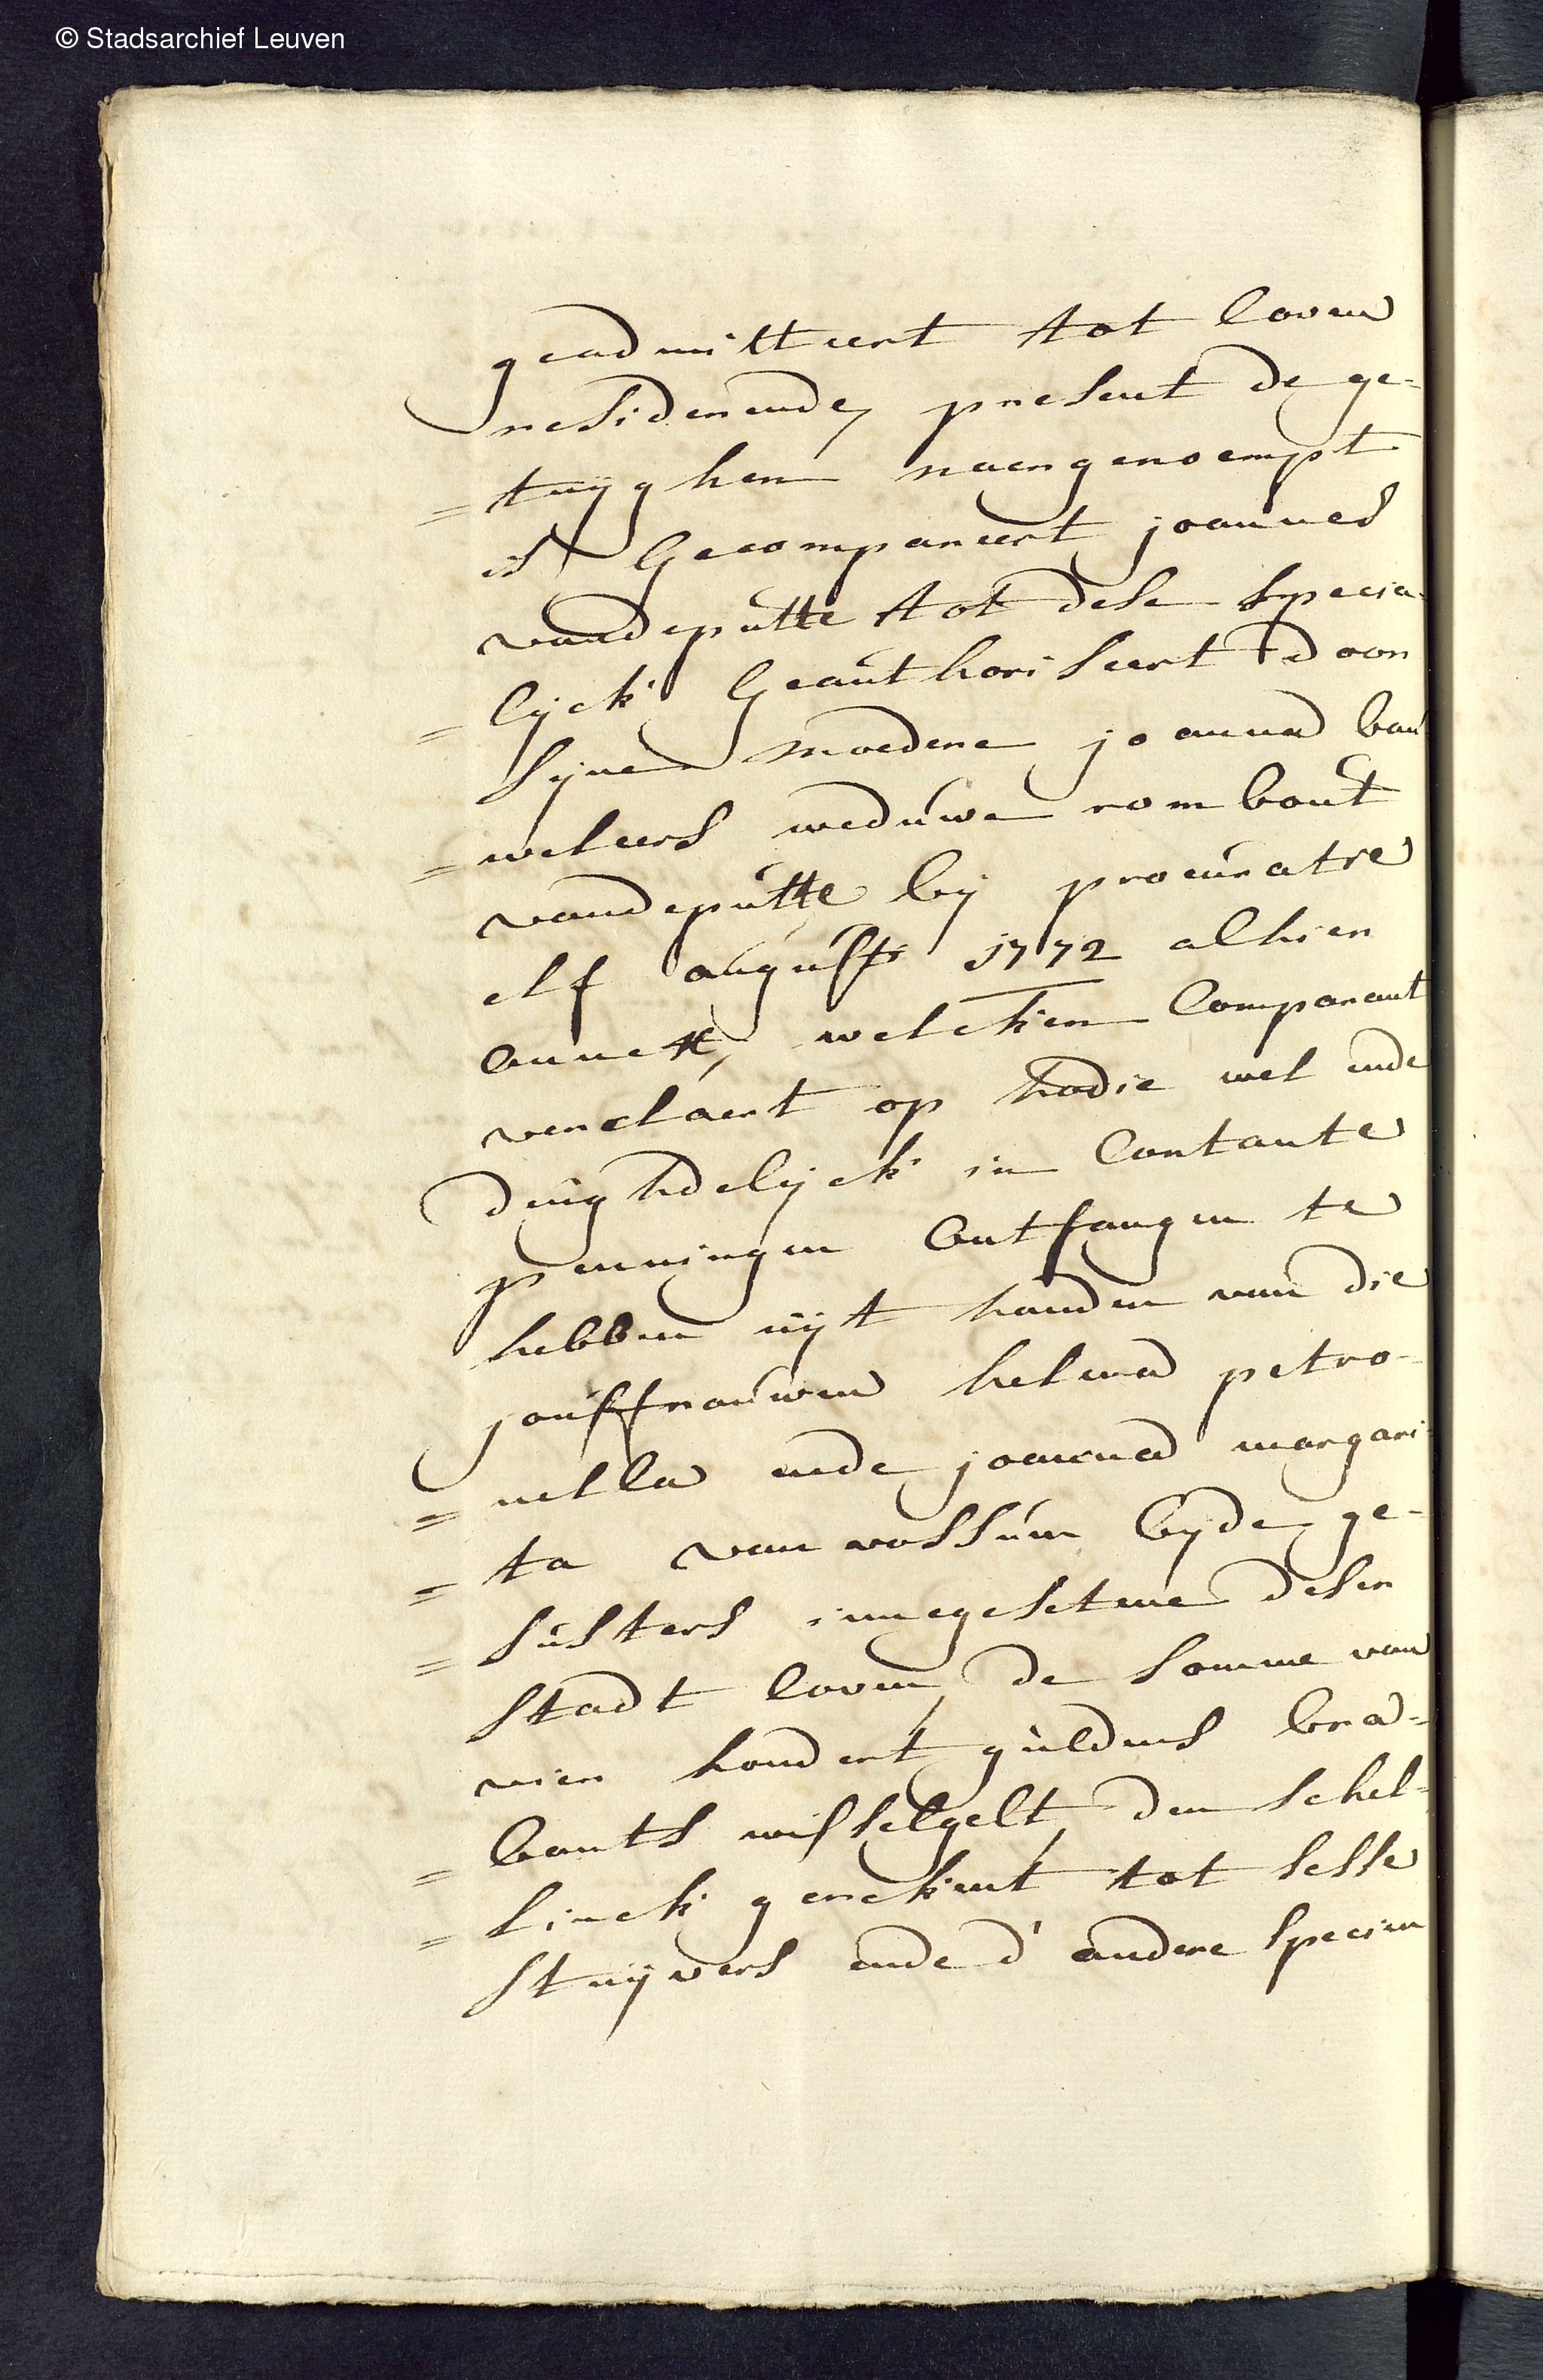 © Stadsarchief Leuven
geadmitteert tot loven
residerende, present de ge-
=tuÿghen naergenoempt
is Gecompareert joannes
vandeputte tot dese specia-
=lijck Geauthoriseert door
sijne moedere joanna bau
=weleers weduwe rombout
vandeputte bij procuratie
elf augusti 1772 alhier
annex, welcken Comparant
verclaert op hodie wel ende
deughdelijck in Contante
penningen Ontfangen te
hebben uÿt handen van die
jouffrouwen helena petro-
=nella ende joanna margari-
=ta van rossum beyde ge-
=susters innegesetene deser
stadt loven, de somme van
vier hondert guldens bra-
=bants wisselgelt, den schel-
=linck gerekent tot sesse
stuÿvers ende d'andere specien